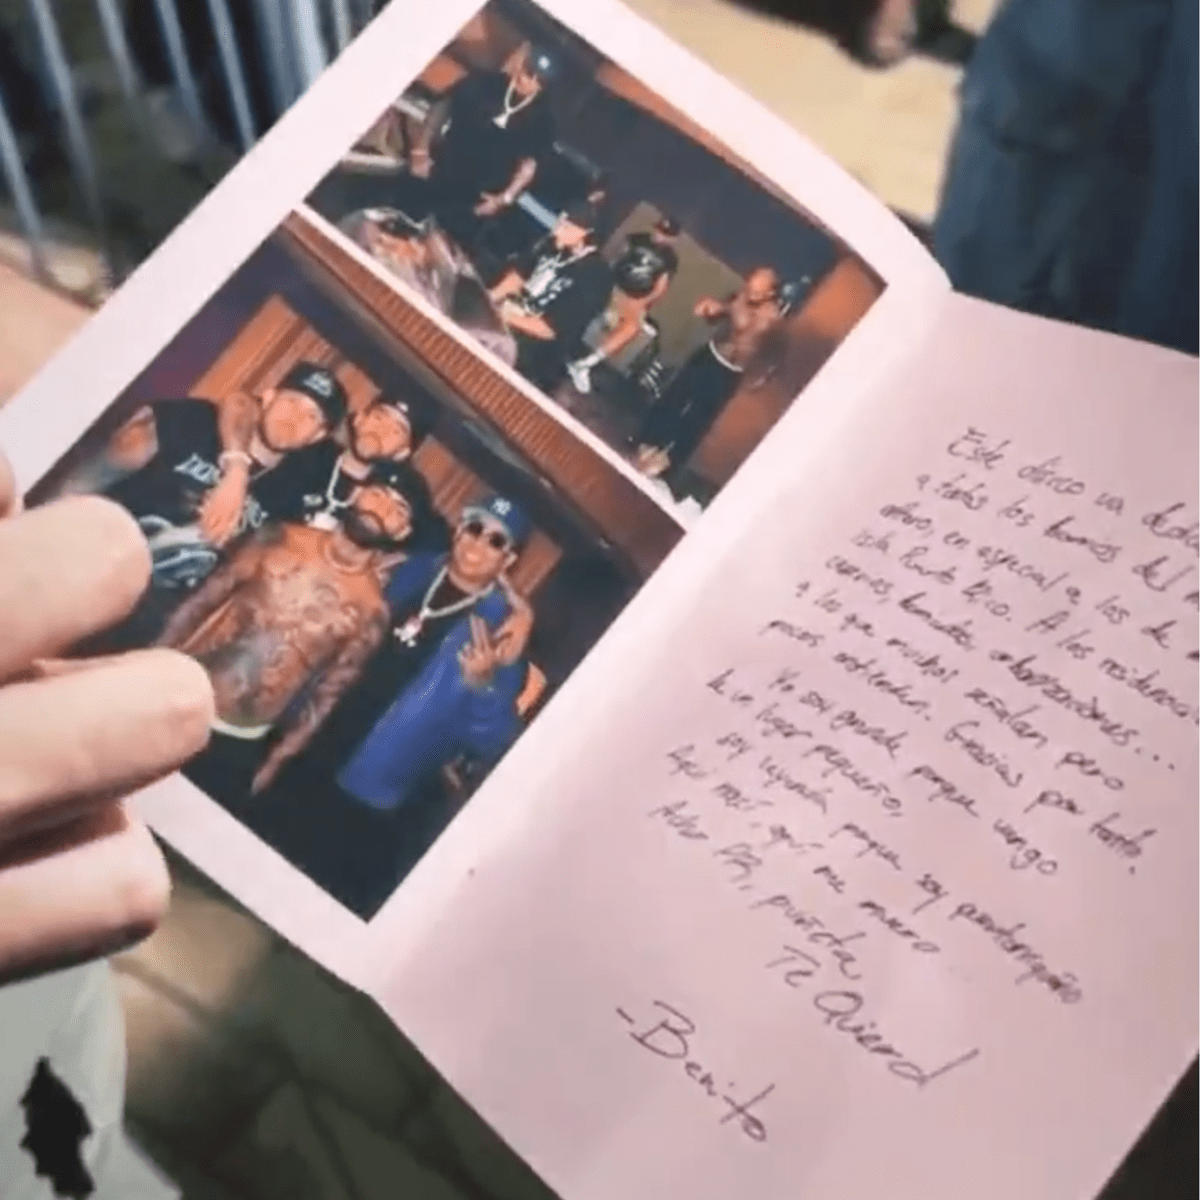 Este disco va dedic
a todos los barrios del m
otro, en especial a los de
isla Puerto Rico. A los residencia
caseríos, barriadas, urbanizaciones...
a los que muchos señalan pero
pocos entienden. Gracias por tanto.
Yo soy grande porque vengo
de un lugar pequeño,
soy leyenda porque soy puertorriqueño
Aquí nací, aquí me muero...
Acho PR, puñeta,
Te Quiero
-Benito